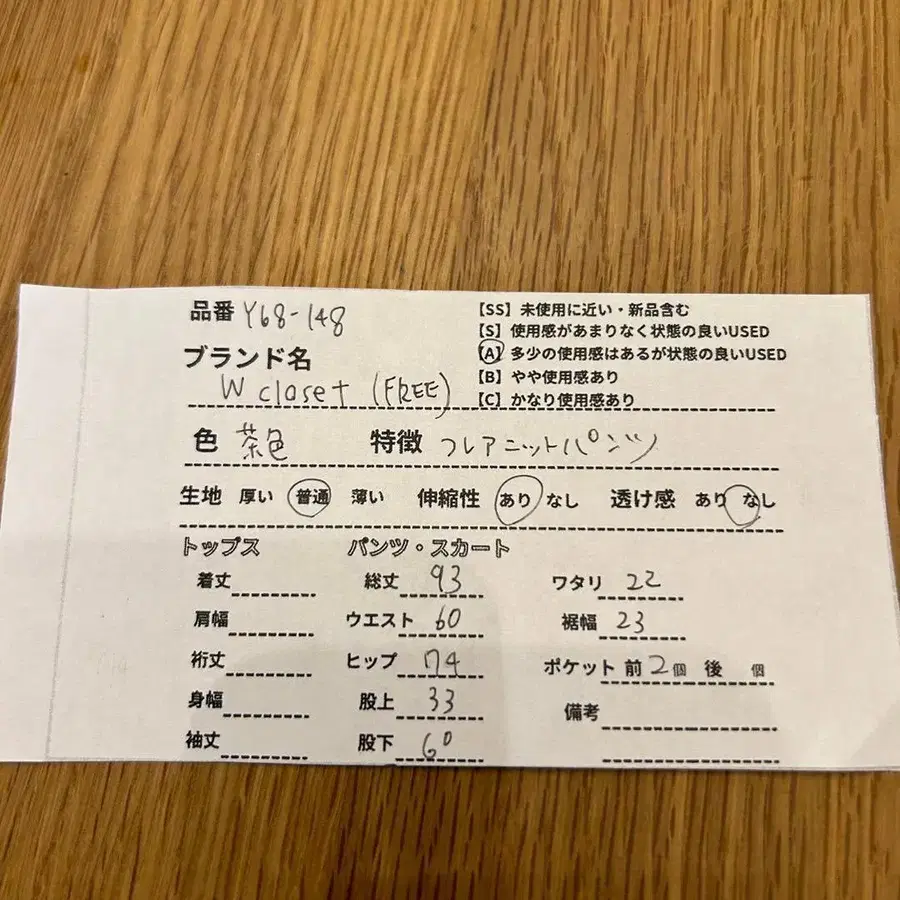 品番 Y68-148
【SS】未使用に近い・新品含む
【S】使用感があまりなく状態の良いUSED
【A】多少の使用感はあるが状態の良いUSED
【B】やや使用感あり
【C】かなり使用感あり
ブランド名
W closet (FREE)
色 茶色 特徴 フレアニットパンツ
生地 厚い 普通 薄い 伸縮性 あり なし 透け感 あり なし
トップス パンツ・スカート
着丈 総丈 93 ワタリ 22
肩幅 ウエスト 60 裾幅 23
裄丈 ヒップ 74 ポケット 前 2個 後 個
身幅 股上 33 備考
袖丈 股下 60